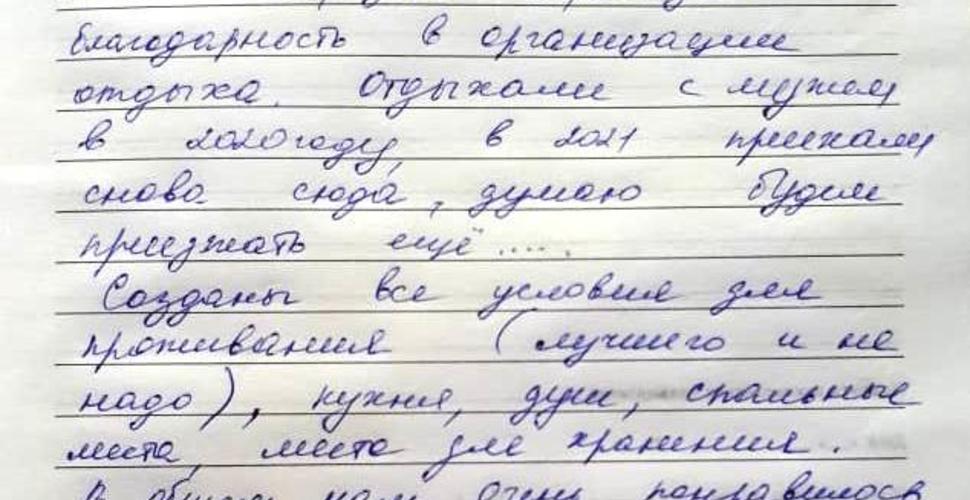 благодарность в организации
отдыха. Отдыхали с мужем
в 2020 году, в 2021 приехали
снова сюда, думаю будем
приезжать ещё.....
Созданы все условия для
проживания (лучшего и не
надо), кухня, душ, спальные
места, места для хранения.
В общем нам очень понравилось